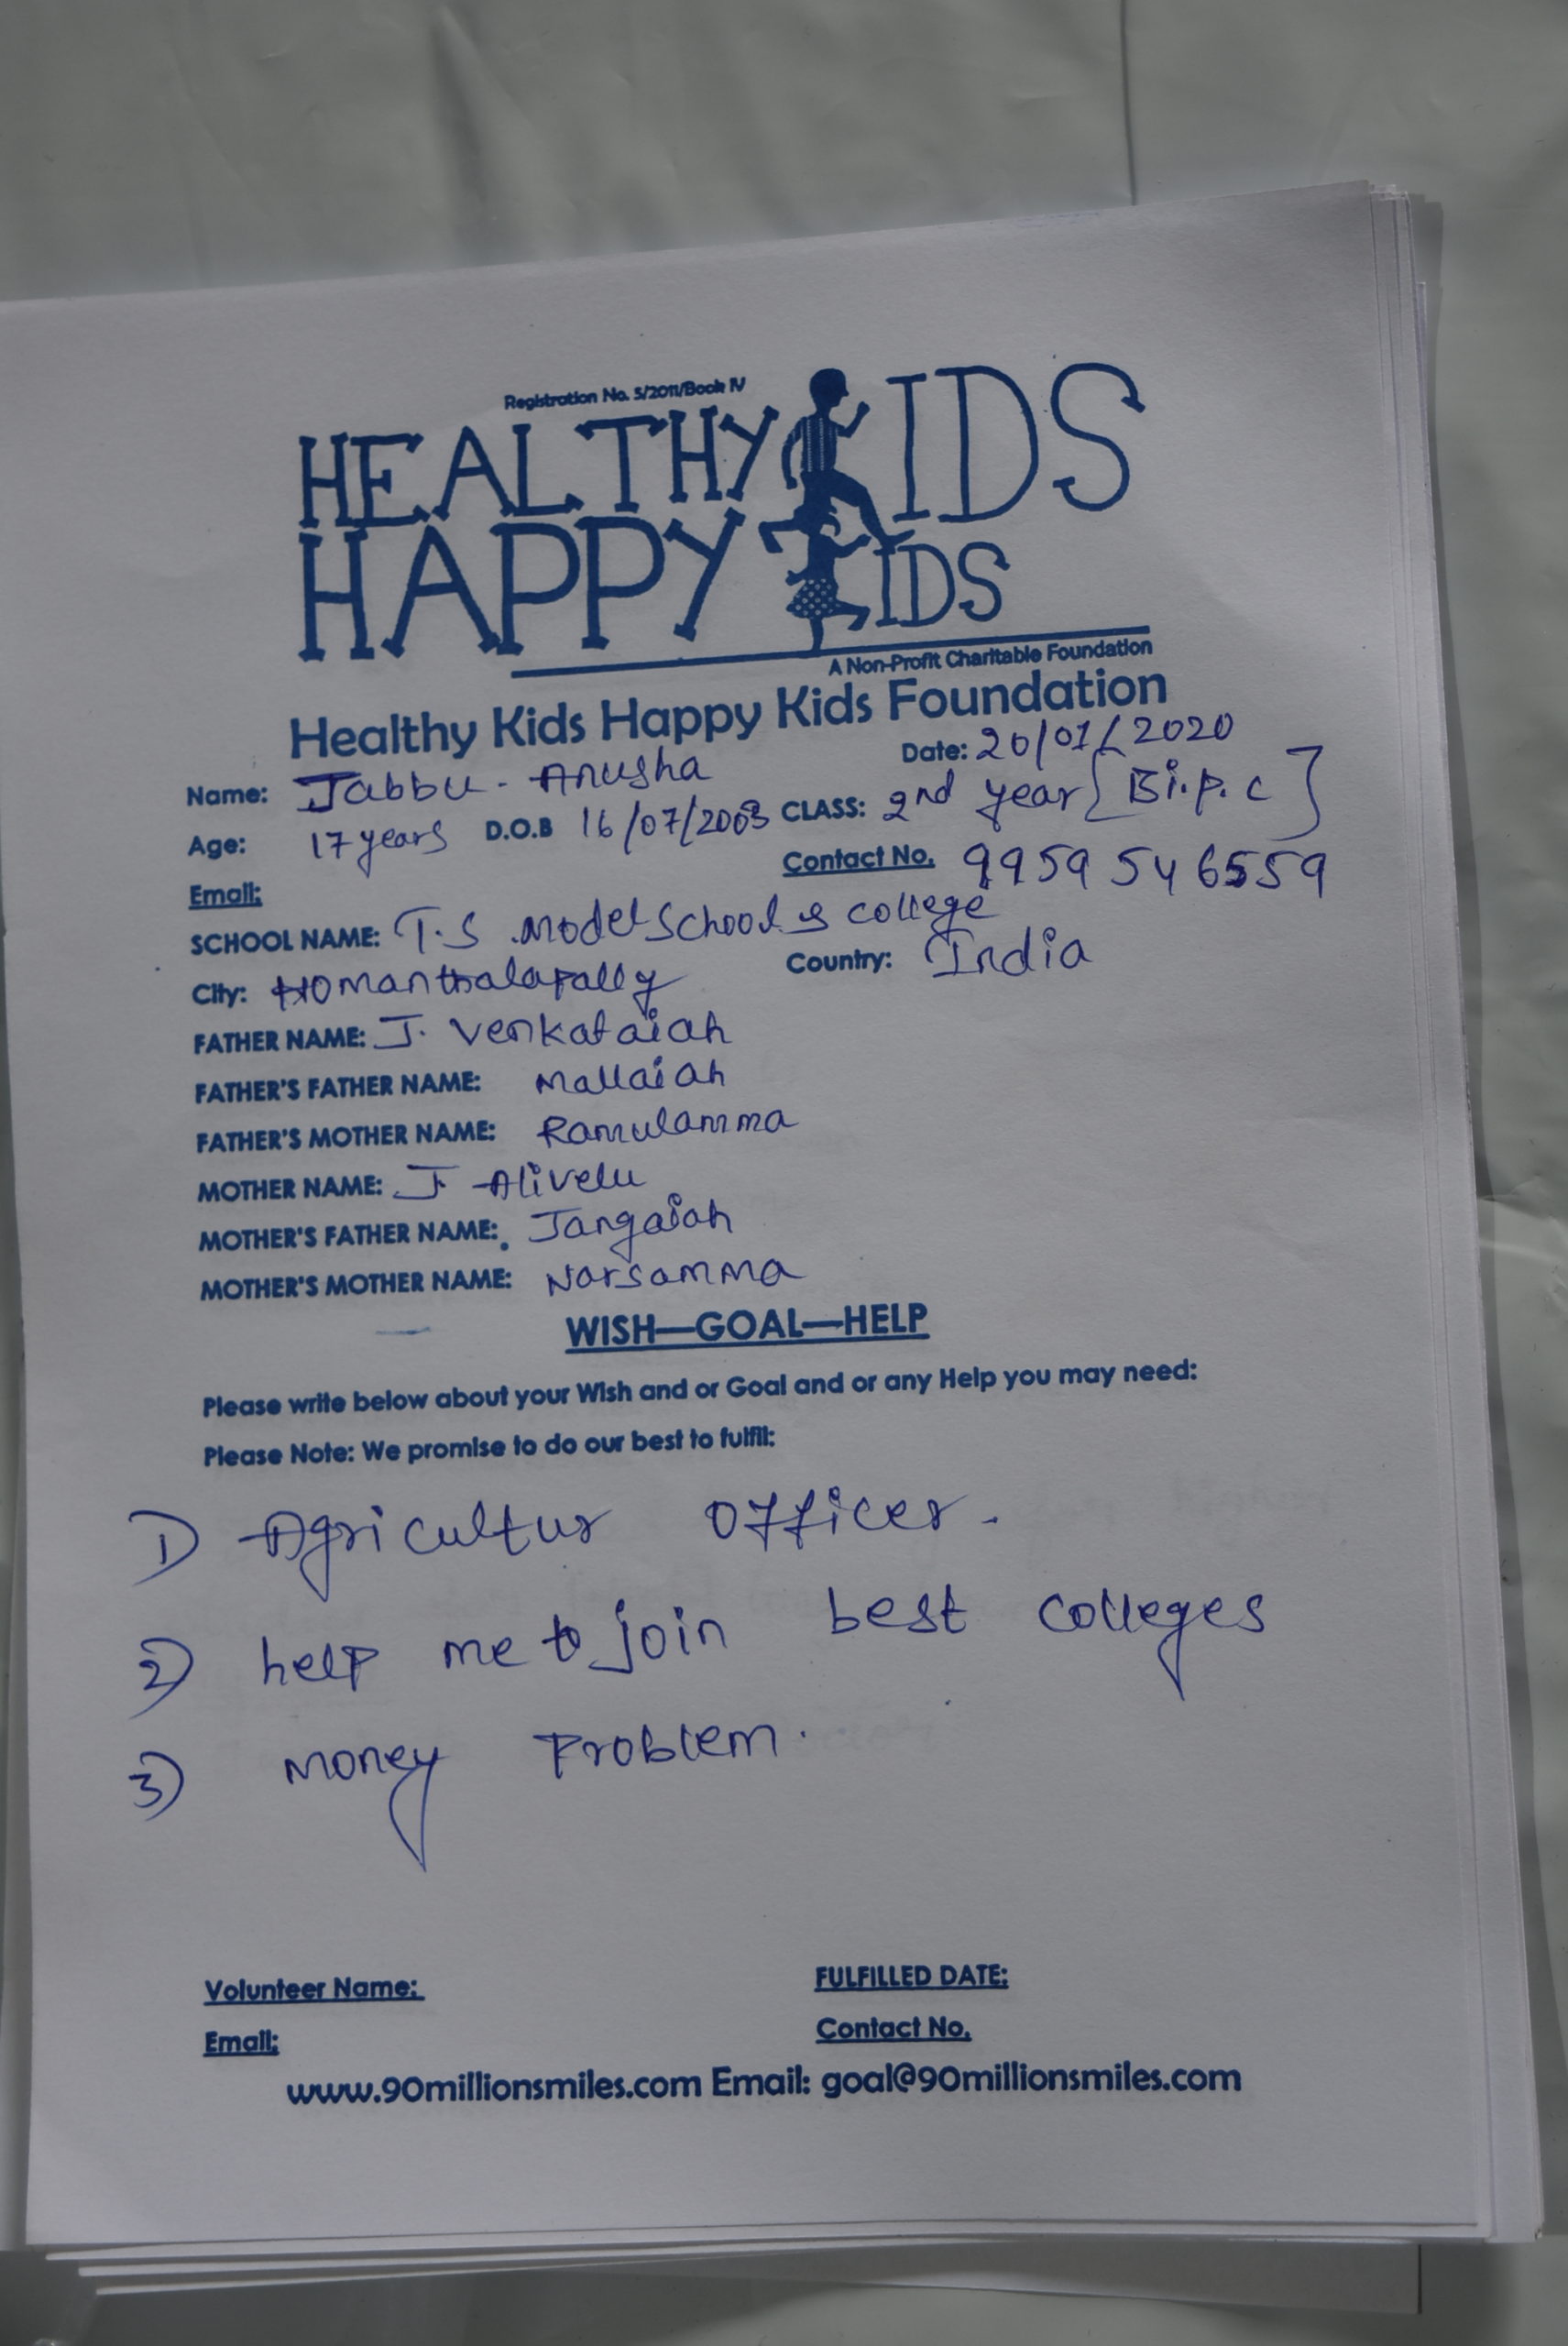 Registration No. 5/2011/Book IV
HEALTHY KIDS
HAPPY KIDS
A Non-Profit Charitable Foundation
Healthy Kids Happy Kids Foundation
Date: 20/01/2020
Name: Jabbu - Anusha
Age: 17 years D.O.B 16/07/2003 CLASS: 2nd year [Bi.p.c]
Email: Contact No. 9959546559
SCHOOL NAME: T.S model School & college
City: Homanthalapally Country: India
FATHER NAME: J. Venkataiah
FATHER'S FATHER NAME: Mallaiah
FATHER'S MOTHER NAME: Ramulamma
MOTHER NAME: J Alivelu
MOTHER'S FATHER NAME: Jangaiah
MOTHER'S MOTHER NAME: Narsamma
WISH—GOAL—HELP
Please write below about your Wish and or Goal and or any Help you may need:
Please Note: We promise to do our best to fulfil:
1) Agricultur officer.
2) help me to join best colleges
3) money Problem.
Volunteer Name: FULFILLED DATE:
Email: Contact No.
www.90millionsmiles.com Email: goal@90millionsmiles.com